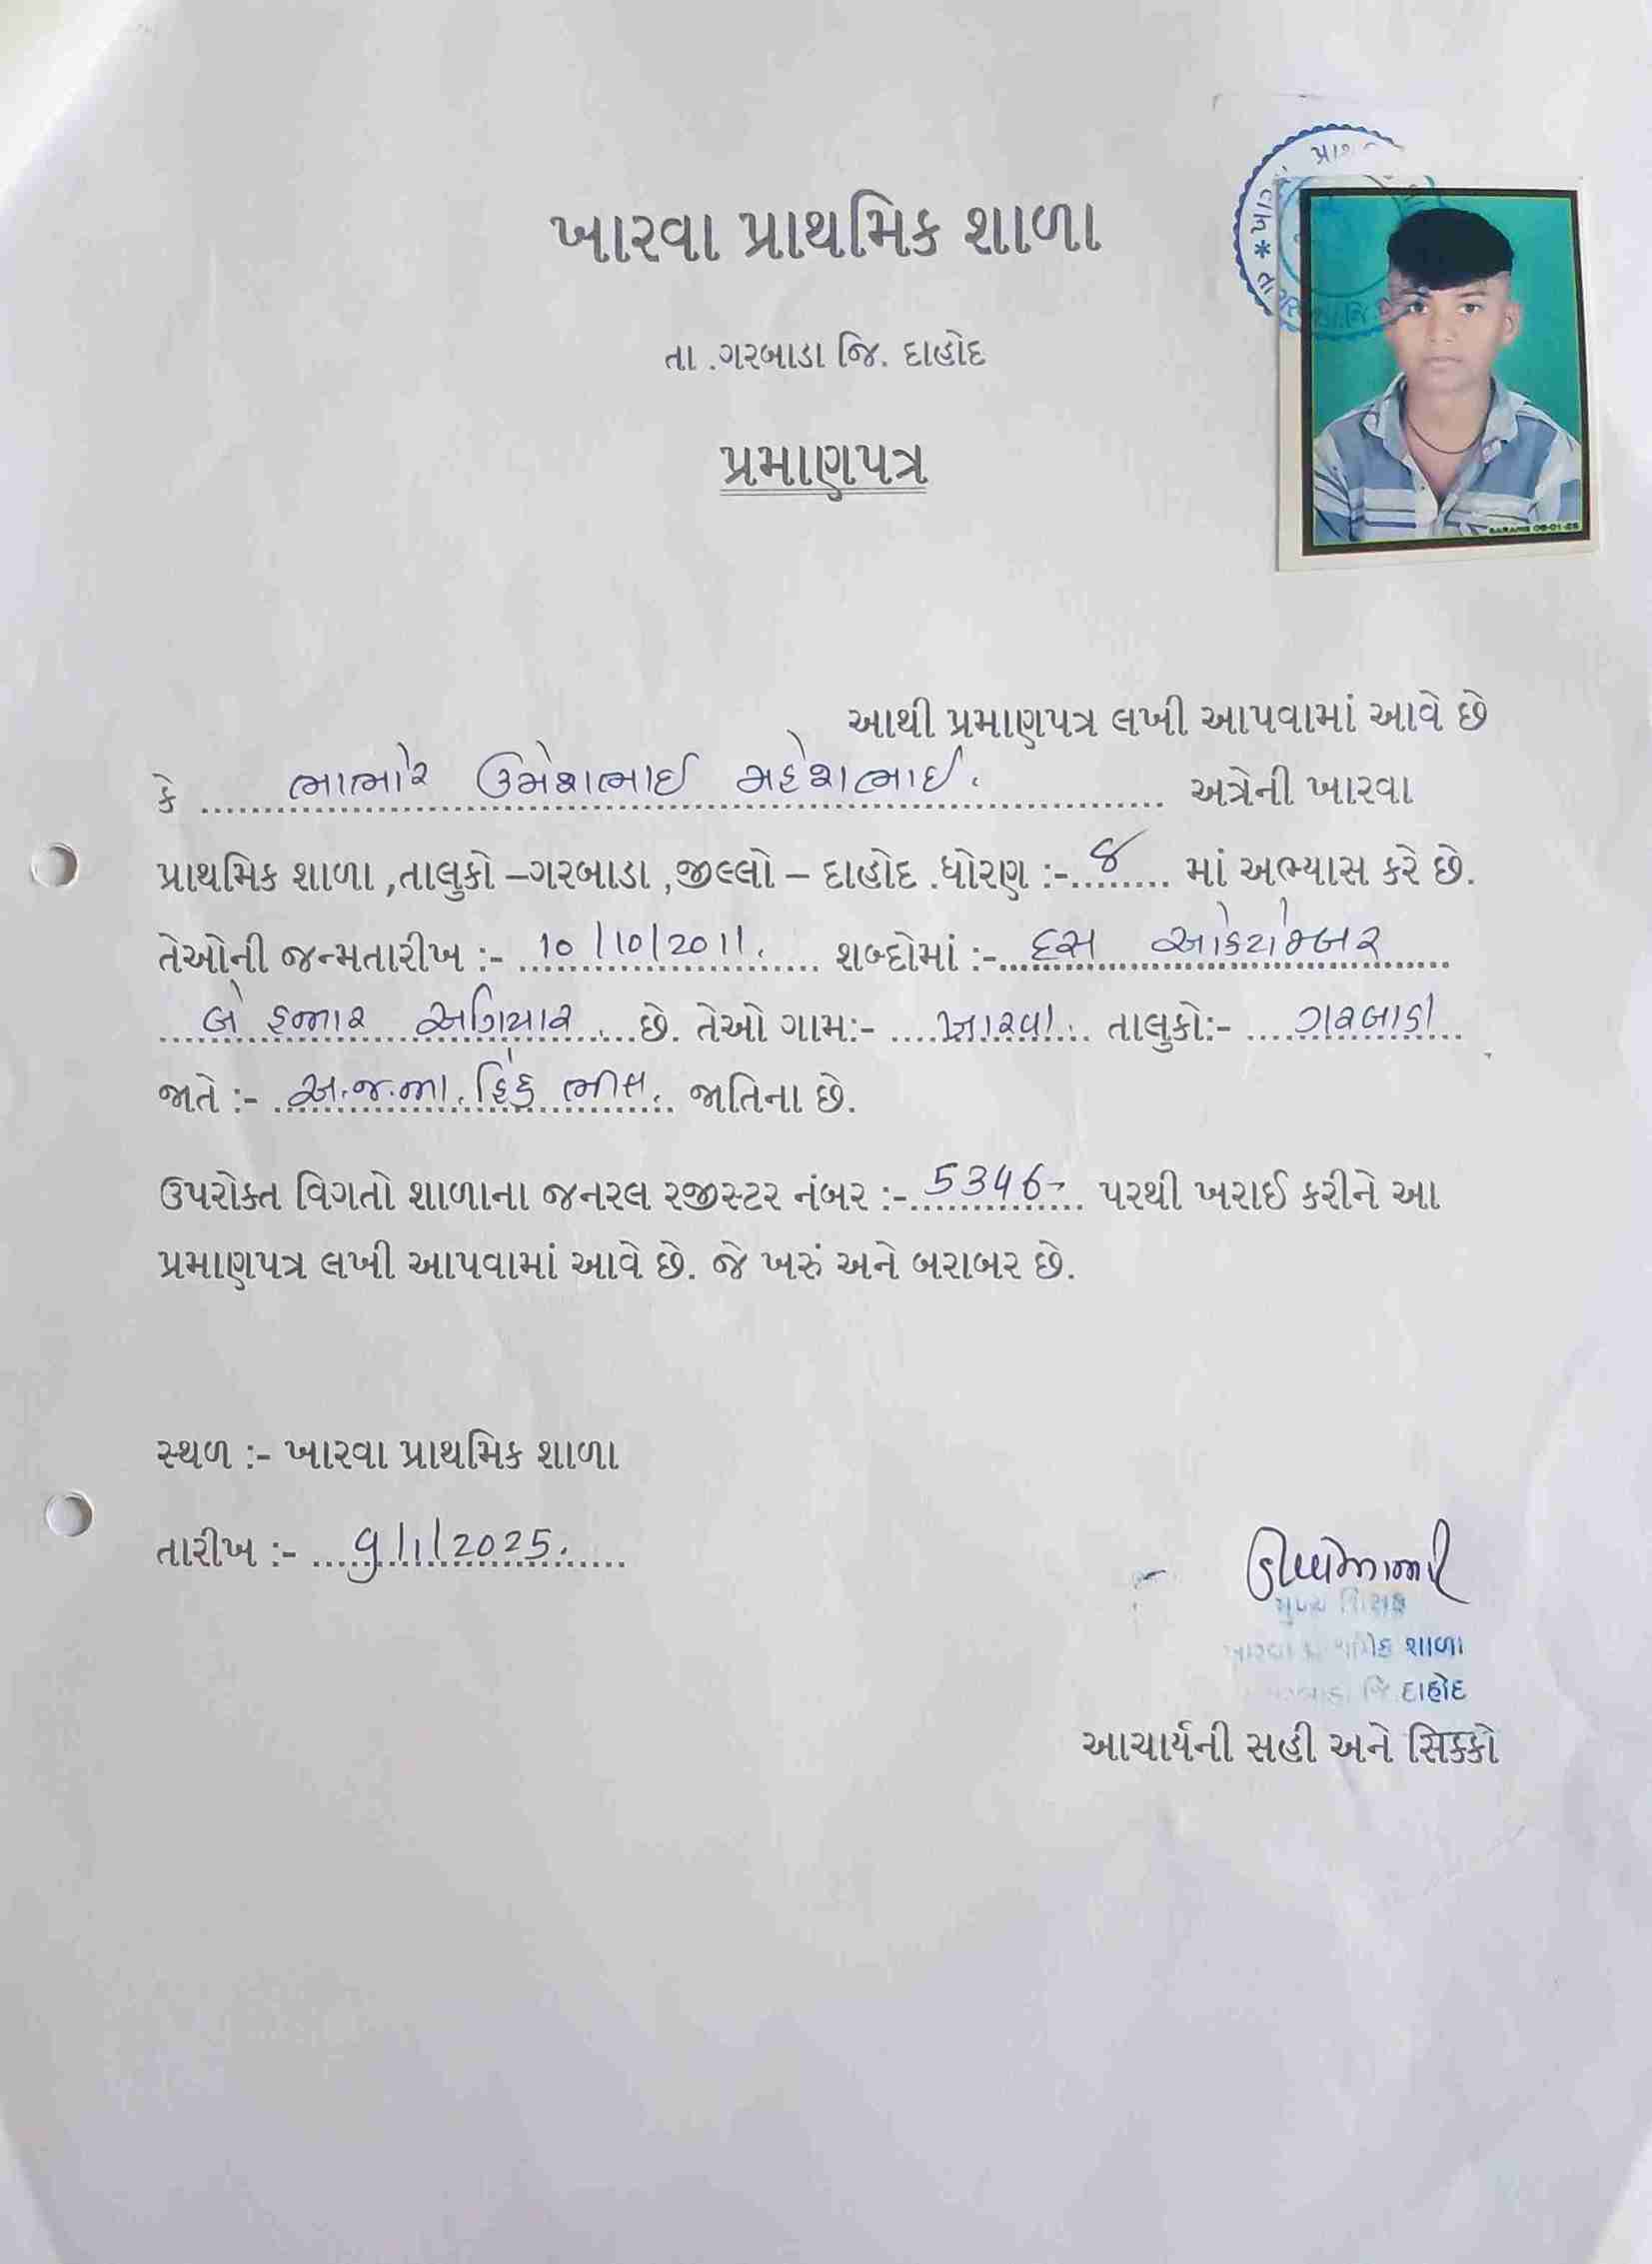 ખારવા પ્રાથમિક શાળા
તા .ગરબાડા જિ. દાહોદ
પ્રમાણપત્ર
આથી પ્રમાણપત્ર લખી આપવામાં આવે છે
કે ભાભોર ઉમેશભાઈ મહેશભાઈ. અત્રેની ખારવા
પ્રાથમિક શાળા ,તાલુકો –ગરબાડા ,જીલ્લો – દાહોદ .ધોરણ :- ૪ માં અભ્યાસ કરે છે.
તેઓની જન્મતારીખ :- 10/10/2011. શબ્દોમાં :- દસ ઓકટોમ્બર
બે હજાર અગિયાર. છે. તેઓ ગામ:- ખારવા. તાલુકો:- ગરબાડા
જાતે :- અ.જ.જા. હિંદુ ભીલ. જાતિના છે.
ઉપરોક્ત વિગતો શાળાના જનરલ રજીસ્ટર નંબર :- 5346 પરથી ખરાઈ કરીને આ
પ્રમાણપત્ર લખી આપવામાં આવે છે. જે ખરું અને બરાબર છે.
સ્થળ :- ખારવા પ્રાથમિક શાળા
તારીખ :- 9/1/2025.
શાળા
જિ. દાહોદ
આચાર્યની સહી અને સિક્કો